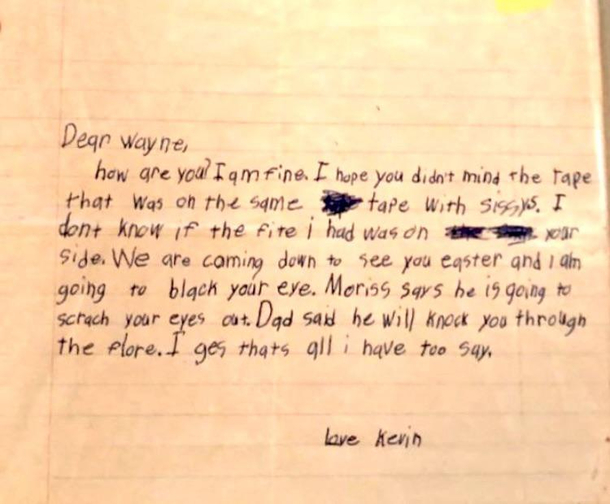 Dear Wayne,
how are you? I am fine. I hope you didn't mind the tape
that was on the same tape with sissys. I
dont know if the fite i had was on your
side. We are coming down to see you easter and i am
going to black your eye. Moriss says he is going to
scrach your eyes out. Dad said he will knock you through
the flore. I ges thats all i have too say.
love Kevin